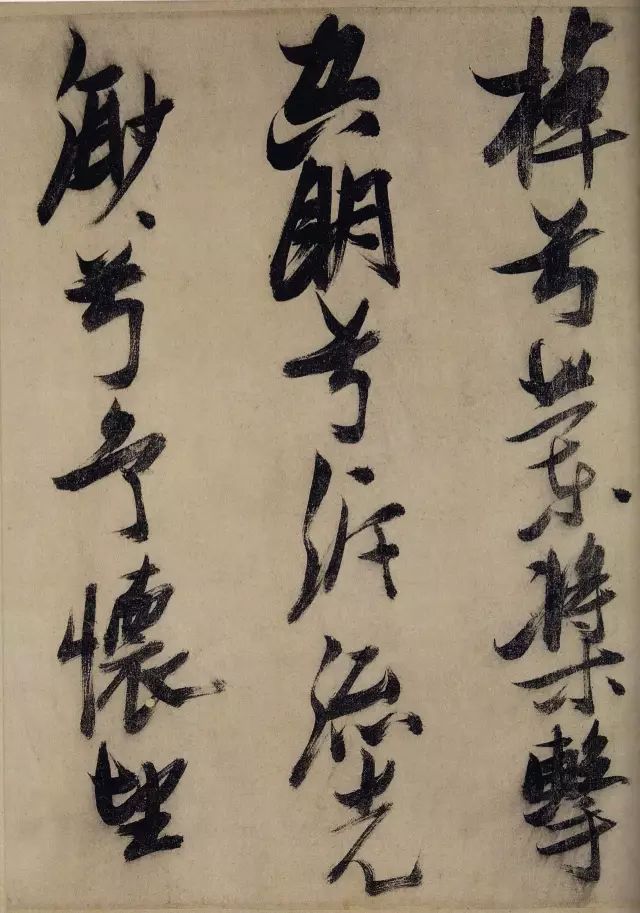 棹兮蘭槳擊
空明兮泝流光
渺〻兮予懷望